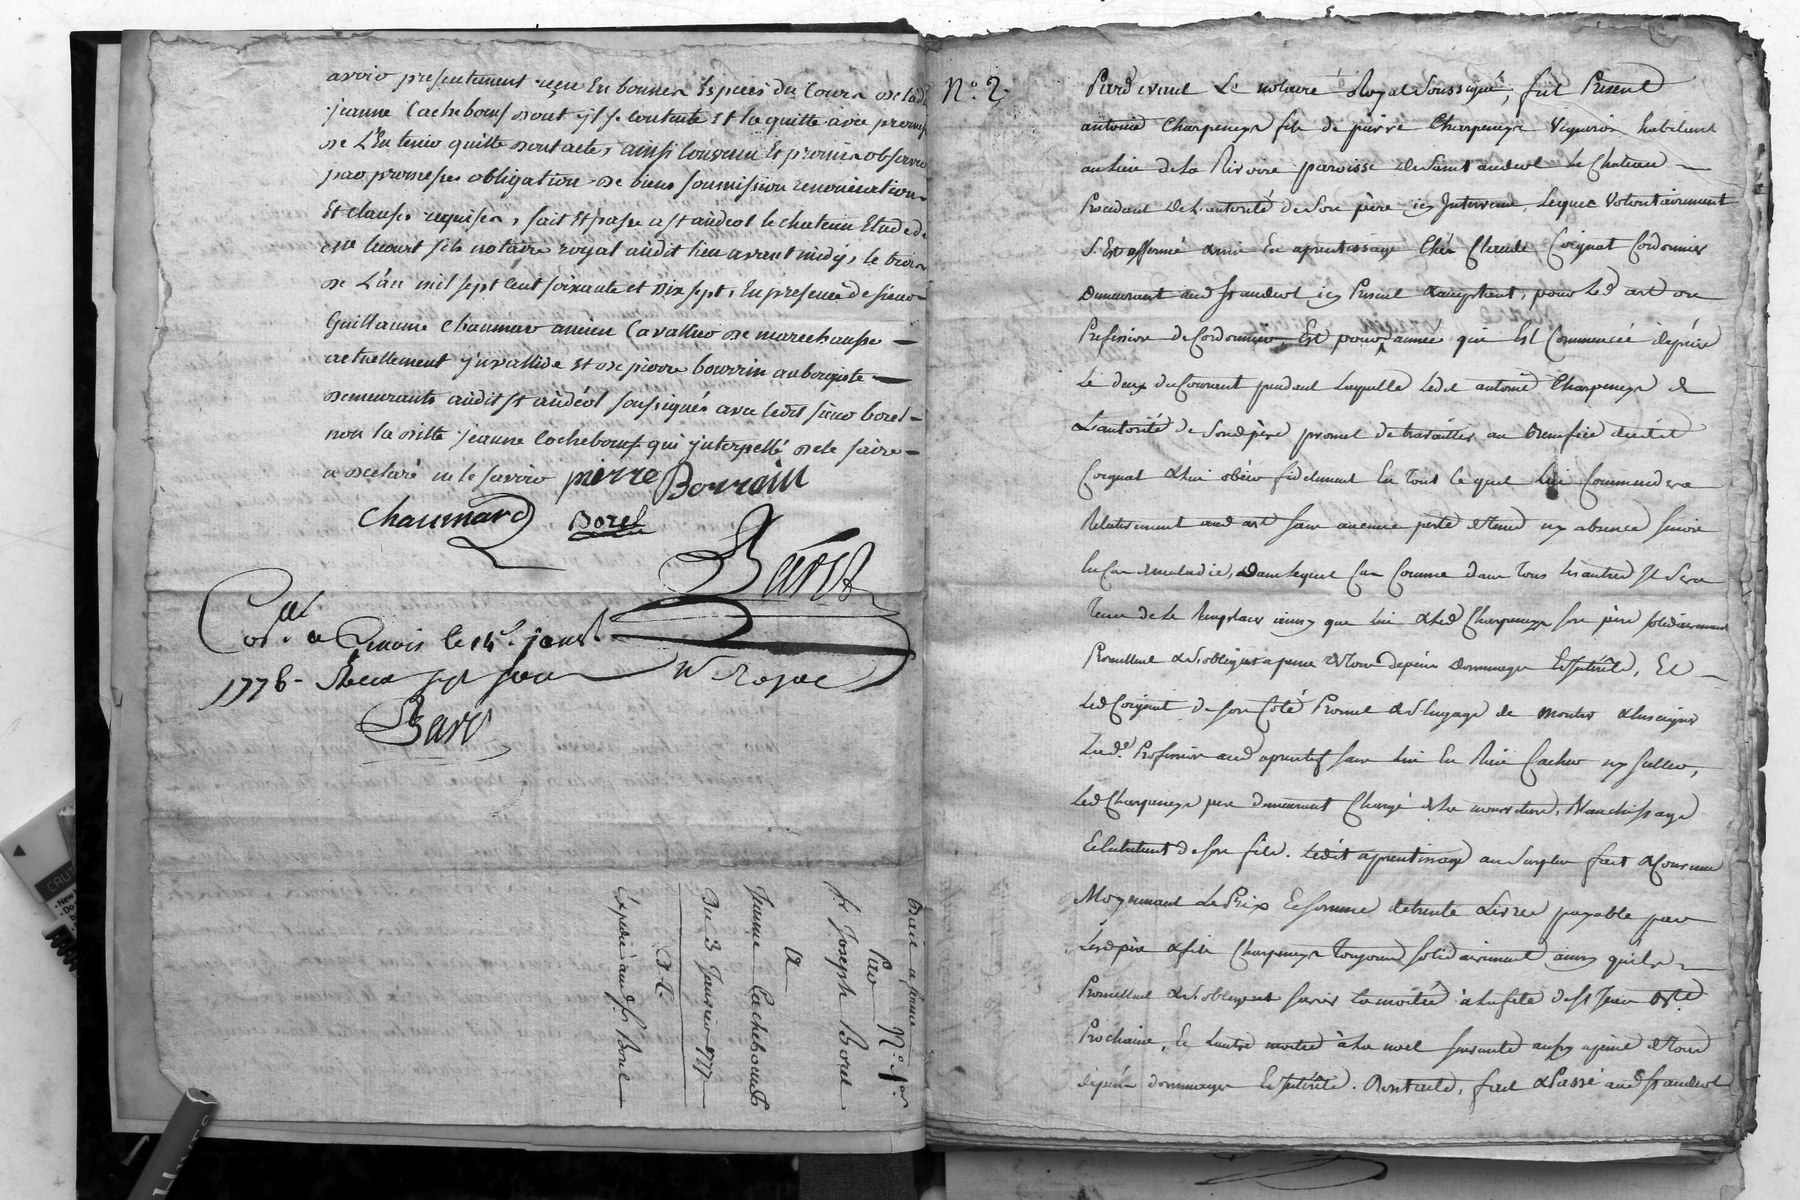 avoir presentement reçu En bonnes Espèces du Cours de lad
jeanne Cacheboeuf dont yl se contente Et la quitte avec promes
de L'En tenir quitte dont acte, ainsi Convenu Et promis observer
par promesses obligation de biens soumission renonciation
Et clauses requises, fait Et passé a st andéol le chateau Etude de
notaire royal audit lieu avant midy, le trois
de L'an mil sept cent soixante et dix sept, En presence de sieur
Guillaume Chaumar ancien Cavallier de marechaussé
actuellement ynvallide Et de pierre bourrin aubergiste
demeurants audit st andéol soussignés avec ledit sieur borel
non la ditte jeanne Cacheboeuf qui ynterpellé de le faire
a declaré ne le savoir pierre Borrain
Chaumard Borel
Barct
le 14e janv
177
Barct
N.o 1er
par
Sr Joseph Borel
a
Jeanne Cacheboeuf
Du 3 Janvier 1777
Expedié aud Sr Borel
N.o 2.
Pardevant Le notaire Royal Soussigné, fut Présent
antoine Charpeneys fils de pierre Charpeneys Vigneron habitant
au lieu de la Rivoire paroisse de Saint andeol le Chateau
Procedant de L'autorité de Son père icy Intervenu, Lequel Volontairement
S'Est affermé & mis En aprentissage Chés Claude Coignat Cordonnier
Demeurant aud St andeol icy Present & acceptant, pour Led art ou
Profession de Cordonnier Est pour année qui Est Commencée depuis
Le deux du Courant pendant Laquelle Ledt antoine Charpeneys de
L'autorité de Sond père promet de travailler au Benefice dudit
Coignat & lui obéir fidelement En Tout ce que Lui Commandera
Relativement aud art sans aucune perte de Temps ny absence sinon
En Cas de maladie, Dans lequel Cas Comme dans Tous les autres Il Sera
Tenu de le Remplacer ainsy que Lui & Led Charpeneys son père solidairement
Promettent & S'obligent a peine de Tous depens Dommages Et Intérêts, Et
Led Coignat de son Coté Promet & S'Engage de Montrer & Enseigner
Lad.e Profession aud aprentif sans Lui En Rien Cacher ny Celler,
Led Charpeneys pere demeurant Chargé de La nourriture, Blanchissage
Et Entretient de son fils. Ledit aprentissage au Surplus fait & Convenu
Moyennant Le Prix Et Somme de trente Livres payable par
Lesd père & fils Charpeneys Toujours solidairement ainsy qu'ils
Promettent & S'obligent savoir La moitié à La fete de St Jean Bte
Prochaine, Et L'autre moitié à La noel suivante aussy a peine de Tous
depens dommages Et Intérêts. Dont acte, fait & Passé aud St andeol